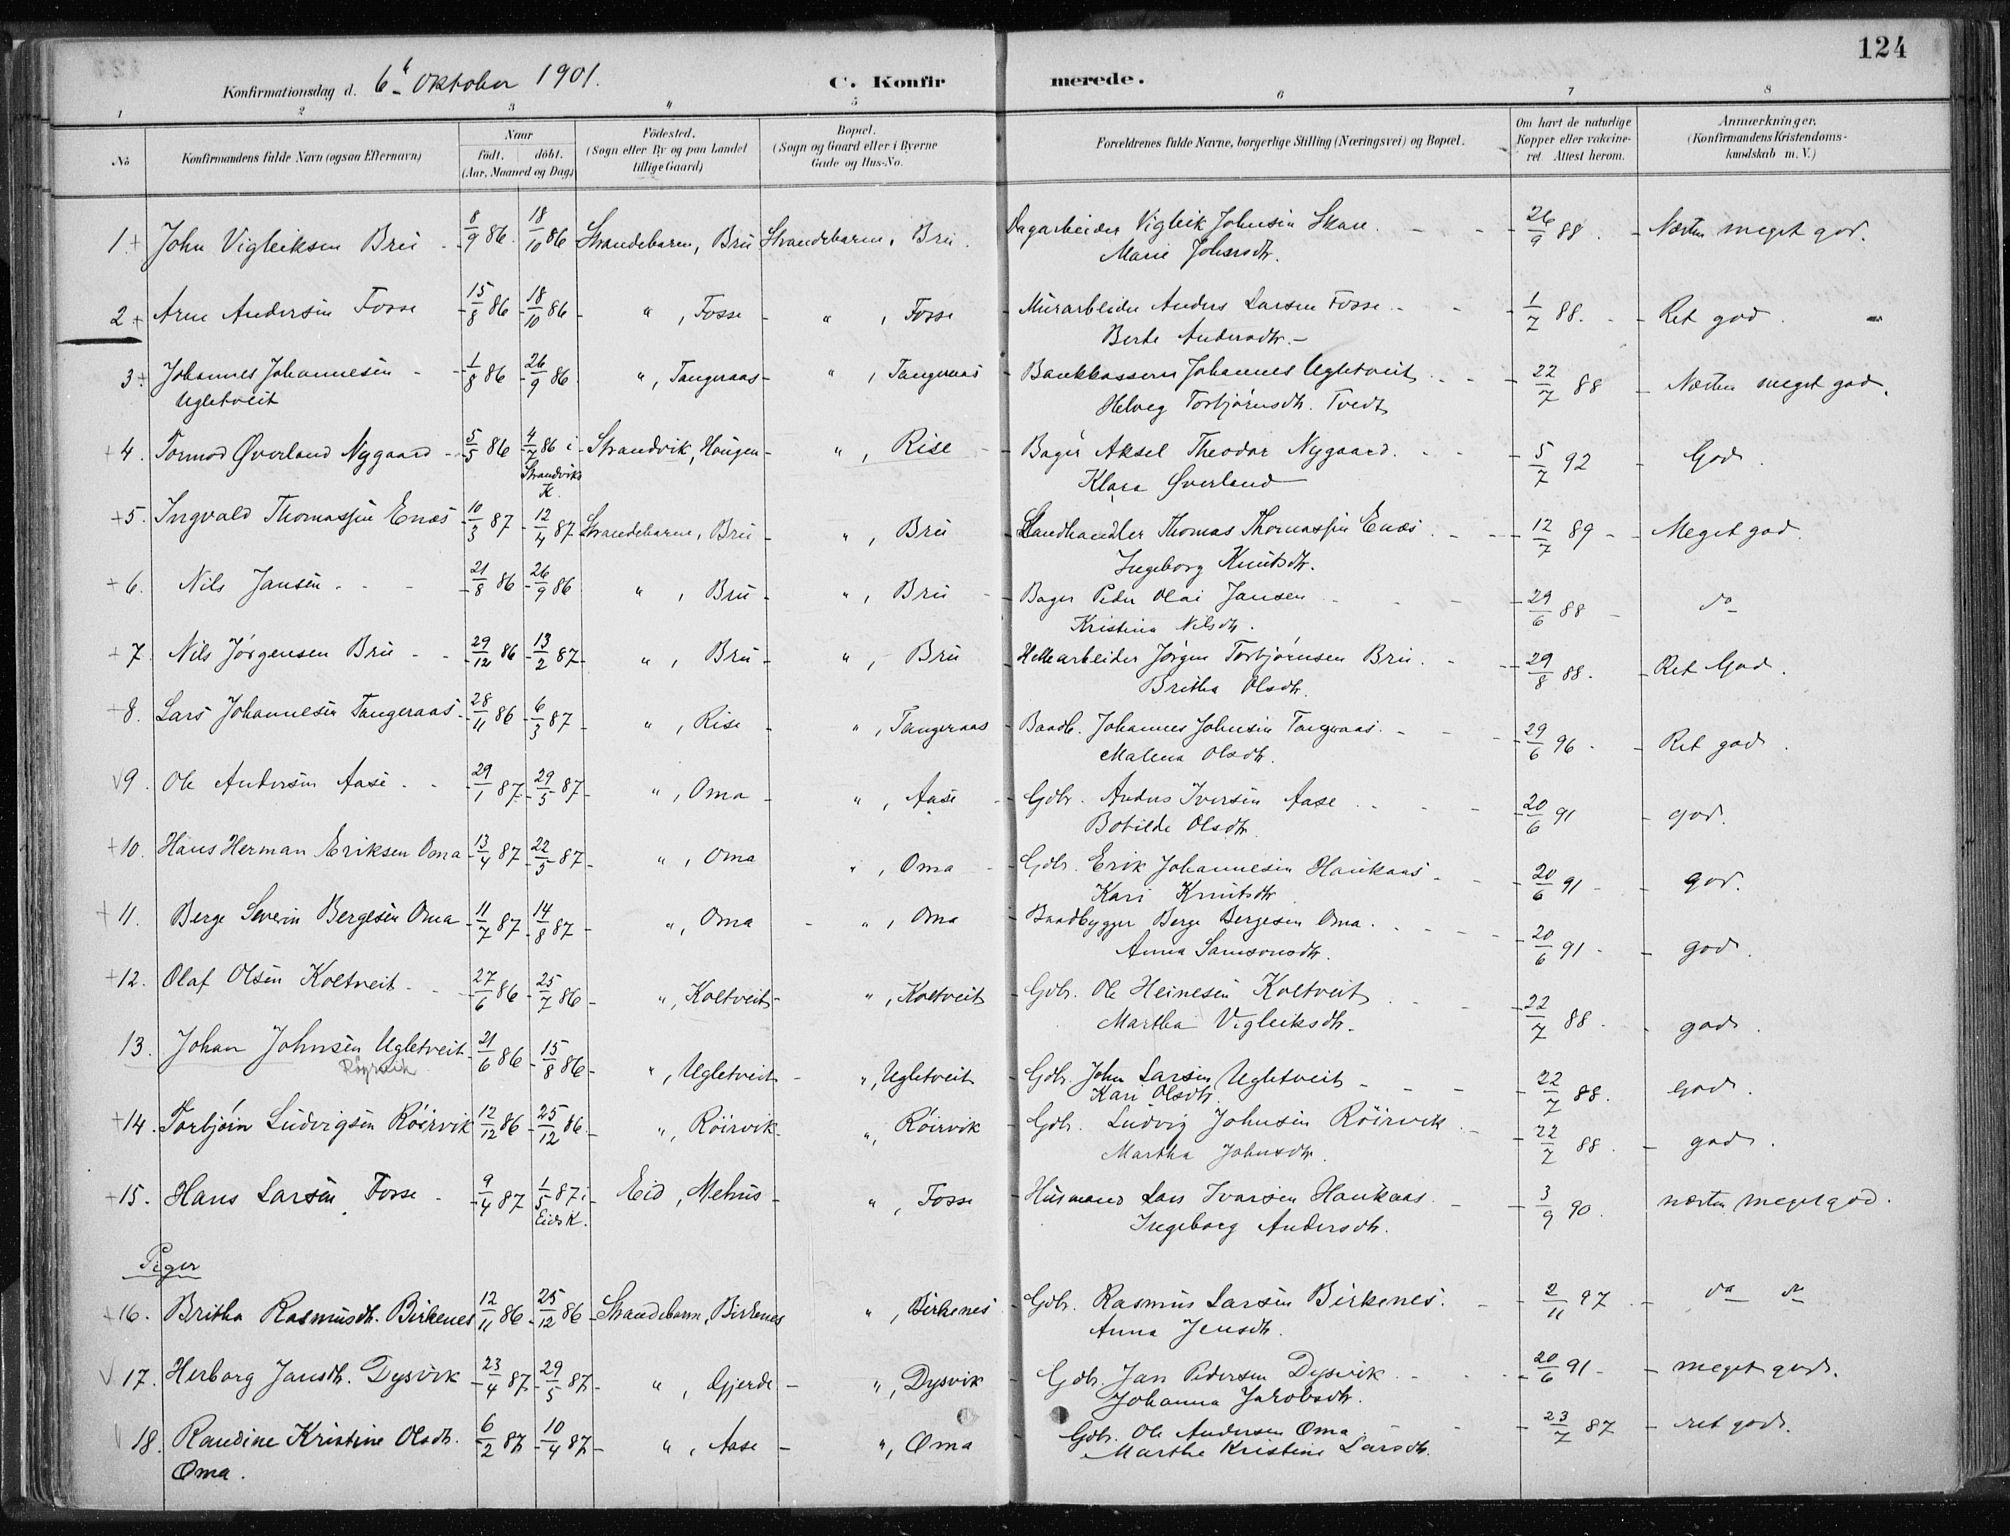 124
Konfirmationsdag d. 6te Oktober 1901.
C. Konfirmerede.
1 2 3 " 5 6 7 8
No Konfirmandens fulde Navn (ogsaa Efternavn) Naar födt. döbt. (Aar, Maaned og Dag) Födested. (Sogn eller By og paa Landet tillige Gaard) Bopæl. (Sogn og Gaard eller i Byerne Gade og Hus-No. Forældrenes fulde Navne, borgerlige Stilling (Næringsvei) og Bopæl. Om havt de naturlige Kopper eller vakcineret Attest herom. Anmærkninger. (Konfirmandens Kristendomskundskab m. V.)
1 + John Vigleiksen Bru 8/9 86 18/10 86 Strandebarm, Bru Strandebarm, Bru Dagarbeider Vigleik Johnsen Skaa 26/9 88 Næsten meget god.
Marie Johnsdtr.
2 + Arne Andersen Fosse 15/8 86 18/10 86 ", Fosse ", Fosse Murarbeider Anders Larsen Fosse 1/7 88 Ret god.
Berte Andersdtr.
3 + Johannes Johannesen 1/8 86 26/9 86 ", Tangeraas ", Tangeraas Bankkasserer Johannes Ugletveit 22/7 88 Næsten meget god.
Ugletveit Helveg Torbjørnsdtr. Tvedt
+ 4. Tormod Øverland Nygaard 5/5 86 4/7 86 i Strandvik, Haugen ", Rise Bager Aksel Theodor Nygaard. 5/7 92 God.
Strandviks K. Klara Øverland
+ 5. Ingvald Thomassen Enæs 10/3 87 12/4 87 Strandebarm, Bru ", Bru Landhandler Thomas Thomassen Enæs 12/7 89 Meget god.
Ingeborg Knutsdtr.
+ 6. Nils Jansen 21/8 86 26/9 86 ", Bru ", Bru Bager Peder Olai Jansen 29/6 88 do
Kristina Nilsdtr.
+ 7. Nils Jørgensen Bru 29/12 86 13/2 87 ", Bru ", Bru Hellearbeider Jørgen Torbjørnsen Bru. 29/8 88 Ret God.
Britha Olsdtr.
+ 8. Lars Johannesen Tangeraas 28/11 86 6/3 87 ", Rise ", Tangeraas Baadb. Johannes Johnsen Tangeraas. 29/6 96 Ret god.
Malena Olsdtr.
√ 9. Ole Andersen Aase 29/1 87 29/5 87 ", Oma ", Aase Gdbr. Anders Iversen Aase 20/6 91 god.
Botilde Olsdtr.
+ 10. Hans Herman Eriksen Oma 13/4 87 22/5 87 ", Oma ", Oma Gdbr. Erik Johannesen Haukaas 20/6 91 god.
Kari Knutsdtr
+ 11. Berge Severin Bergesen Oma 11/7 87 14/8 87 ", Oma ", Oma Baadbygger Berge Bergesen Oma. 20/6 91 god.
Anna Samsonsdtr.
+ 12. Olaf Olsen Koltveit 27/6 86 25/7 86 ", Koltveit ", Koltveit Gdbr. Ole Heinesen Koltveit 22/7 88 god.
Martha Vigleiksdtr.
13. Johan Johnsen Ugletveit 21/6 86 15/8 86 ", Ugletveit ", Ugletveit Gdbr. John Larsen Ugletveit 22/7 88 god.
Røyrvik Kari Olsdtr.
+ 14. Torbjørn Ludvigsen Røirvik 12/12 86 25/12 86 ", Røirvik ", Røirvik Gdbr. Ludvig Johnsen Røirvik 22/7 88 god.
Martha Johnsdtr.
+ 15. Hans Larsen Fosse 9/4 87 1/5 87 i Eid, Mehus ", Fosse Husmand Lars Ivarsen Haukaas 3/9 90 næsten meget god.
Eids K. Ingeborg Andersdtr.
Piger
+ 16. Britha Rasmusdtr. Birkenes 12/11 86 25/12 86 Strandebarm, Birkenes ", Birkenes Gdbr. Rasmus Larsen Birkenes. 2/11 97 do do
Anna Jensdtr.
√ 17. Herborg Jansdtr. Dysvik 23/4 87 29/5 87 ", Gjerde ", Dysvik Gdbr. Jan Pedersen Dysvik 20/6 91 meget god.
Johanna Jakobsdtr.
√ 18. Randine Kristine Olsdtr. 6/2 87 10/4 87 ", Aase ", Oma Gdbr. Ole Andersen Oma 23/7 87 ret god.
Oma. Marthe Kristine Larsdtr.